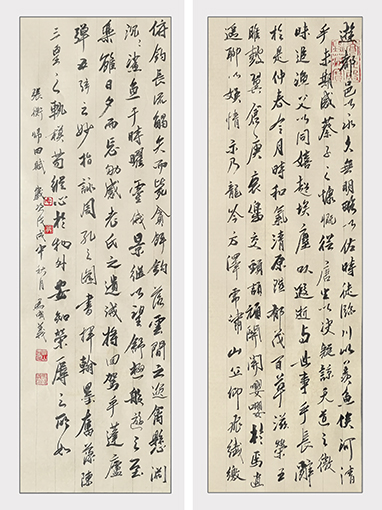 遊都邑以永久無明略以佐時徒臨川以羨魚俟河清
乎未期感蔡子之慷慨從唐生以决疑諒天道之微
昧追漁父以同嬉超埃塵以遐逝與世事乎長辭
於是仲春令月時和氣清原隰郁茂百草滋榮王
雎鼓翼倉庚哀鳴交頸頡頏關關嚶嚶於焉逍
遥聊以娱情尔乃龍吟方澤虎嘯山丘仰飛纖繳
俯釣長流觸矢而斃貪餌吞鈎落雲間之逸禽懸淵
沉之鯊鰡于時曜靈俄景繼以望舒極般遊之至
樂雖日夕而忘劬感老氏之遺誡將迴駕乎蓬廬
彈五絃之妙指詠周孔之圖書揮翰墨奮藻陳
三皇之軌模苟縱心於物外安知榮辱之所如
張衡歸田賦 歲次戊戌年秋月